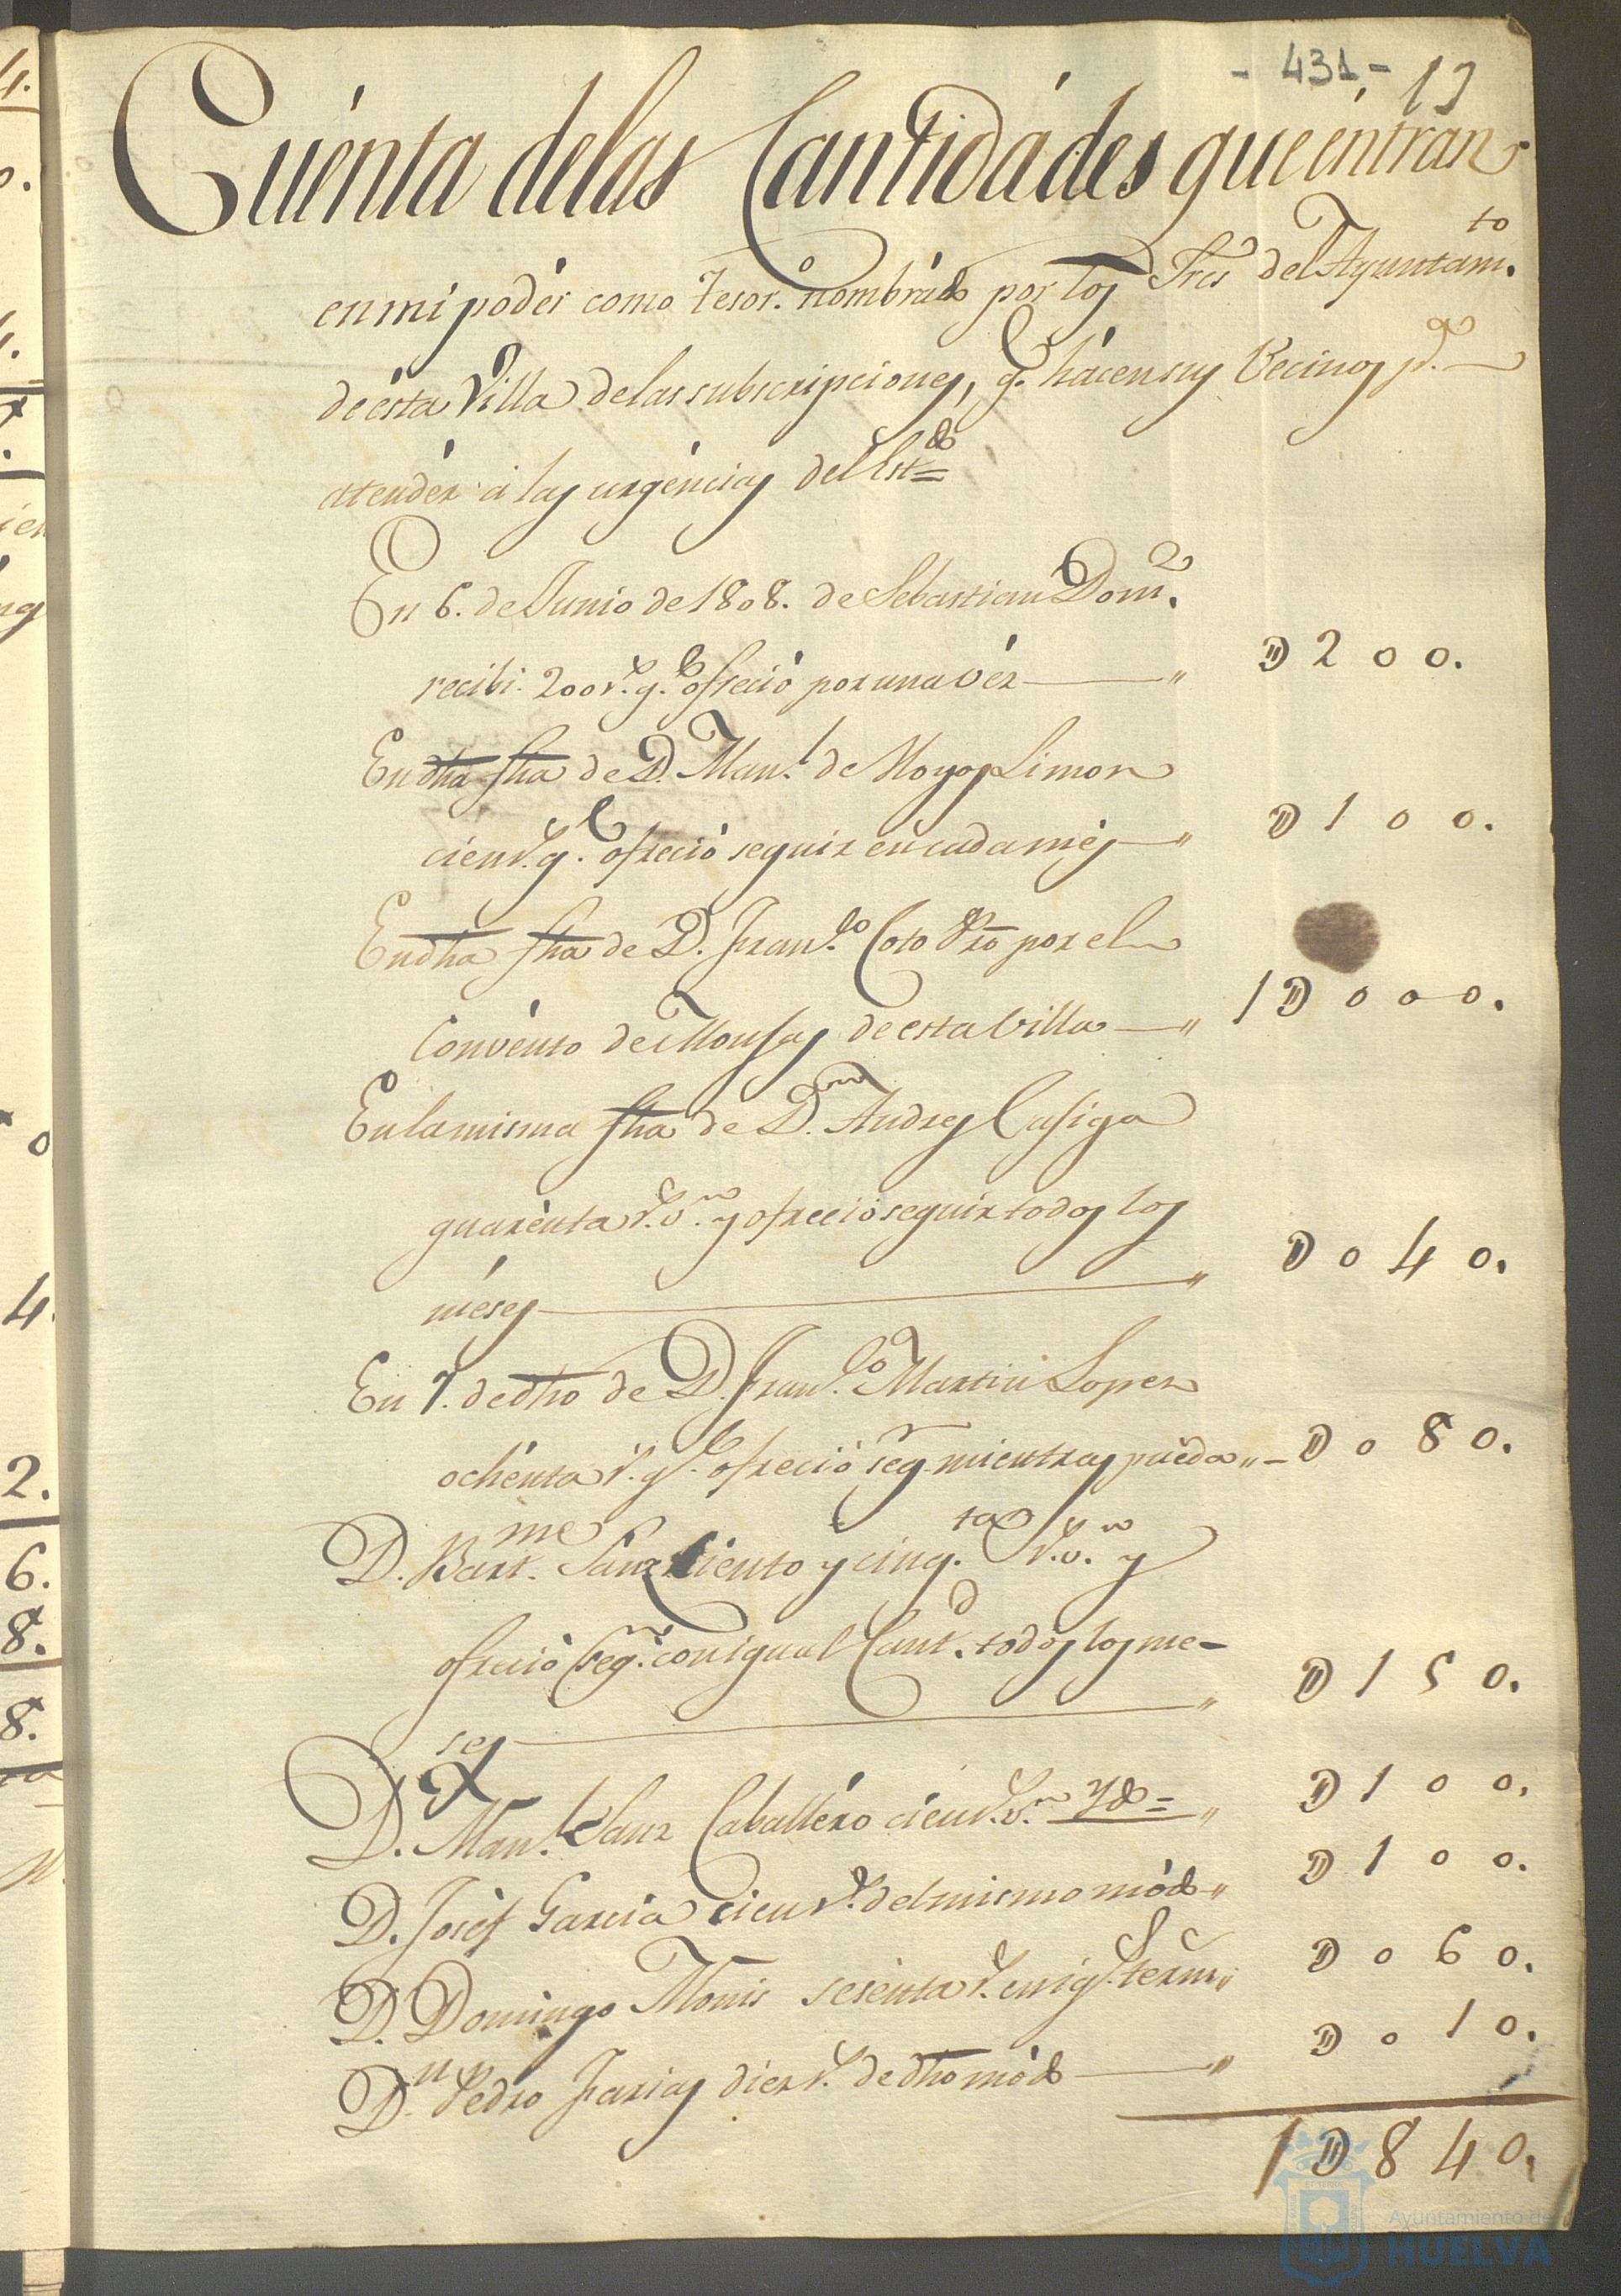 - 431,- 13
Cuénta delas Cantidádes que éntran
en mi podér como Tesor.o nombrádo por los Sres del Ayuntam.to
de ésta Villa de las subscripciones, q.e hácen sus Vecinos p.a
atendér á las urgéncias del Est.do =
En 6. de Junio de 1808. de Sebastian Dom.z
recibi 200 r.s q.e ofreció por una véz — " D 200.
En dha fha de D. Man.l de Moyos Limon
cien r.s q.e ofreció seguir en cada més — " D 100.
En dha fha de D. Fran.co Coto Pro por el
Convénto de Monjas de esta Villa — " 1D000.
En la misma fha de D.n Andres
quarénta r.s v.n y ofreció seguir todos los
méses — " D040.
En 7. de dho de D. Fran.co Martin Lopez
ochénta r.s q.e ofreció seg.r mientras puéda "- D080.
D. Bart.me Sanz Ciento y cinq.ta r.s v.n y
ofreció seg.r con igual Cant.d todos los me-
ses — " D150.
D. Man.l Sanz Caballéro cien r.s v.n Yd = " D100.
D. Joséf Garcia cien r.s del mismo módo " D100.
D. Domingo Monis sesenta r.s en ig.l term.o " D060.
D.n Pedro Farias diez r.s de dho módo — " D010.
1D840.
4.
4.
2.
6.
8.
8.
Ayuntamiento de
HUELVA